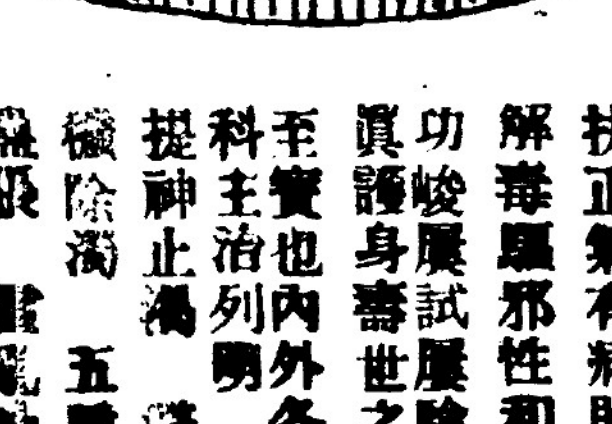 扶正氣有病
解毒驅邪性和
功峻屢試屢險
真護身壽世之
至寶也內外各
科主治列明
提神止渴
穢除濁 五